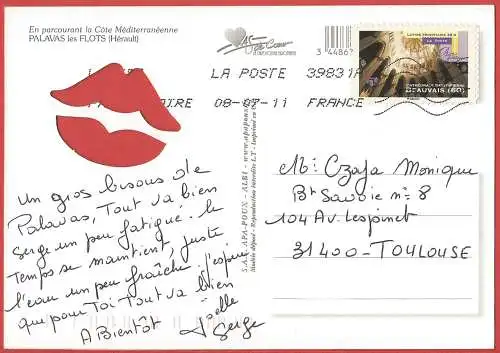 En parcourant la Côte Méditerranéenne
PALAVAS les FLOTS (Hérault)
As de Cœur
3 44867
LETTRE PRIORITAIRE 20 g
LA POSTE
BEAUVAIS (60)
LA POSTE 39831A
08-07-11 FRANCE
S.A.S. APA-POUX - ALBI -
Modèle déposé - Reproduction interdite L.T - Imprimé en
Un gros bisous de
Palavas, Tout va bien
Serge un peu fatigué. le
temps se maintient, juste
l'eau un peu fraîche. J'espère
que pour Toi Tout va bien
A Bientôt Joëlle
Serge
Me: Czaja Monique
Bt Savoie n° 8
104 Av. Lespinet
31400-TOULOUSE